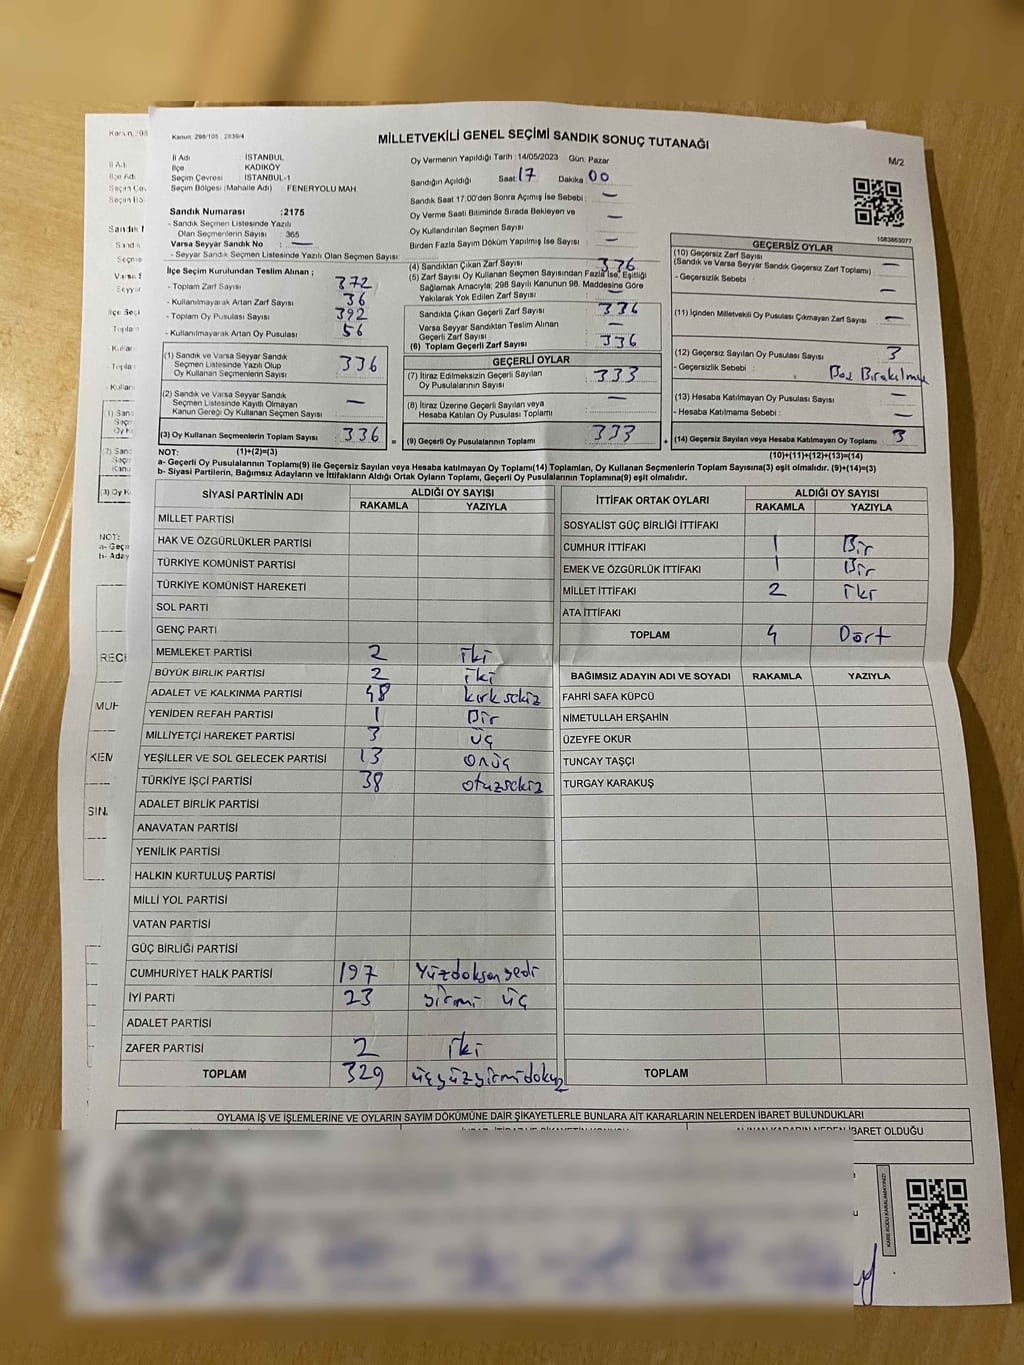 Kanun: 298/105 - 2839/4
MİLLETVEKİLİ GENEL SEÇİMİ SANDIK SONUÇ TUTANAĞI
M/2
İl Adı : İSTANBUL
İlçe : KADIKÖY
Seçim Çevresi : İSTANBUL-1
Seçim Bölgesi (Mahalle Adı) : FENERYOLU MAH
Sandık Numarası :2175
- Sandık Seçmen Listesinde Yazılı
Olan Seçmenlerin Sayısı : 365
Varsa Seyyar Sandık No : —
- Seyyar Sandık Seçmen Listesinde Yazılı Olan Seçmen Sayısı :
Oy Vermenin Yapıldığı Tarih : 14/05/2023 Gün: Pazar
Sandığın Açıldığı Saat: 17 Dakika 00
Sandık Saat 17:00'den Sonra Açımış İse Sebebi —
Oy Verme Saati Bitiminde Sırada Bekleyen ve
Oy Kullandırılan Seçmen Sayısı —
Birden Fazla Sayım Döküm Yapılmış İse Sayısı —
1583863077
İlçe Seçim Kurulundan Teslim Alınan ;
- Toplam Zarf Sayısı 372
- Kullanılmayarak Artan Zarf Sayısı 36
- Toplam Oy Pusulası Sayısı 392
- Kullanılmayarak Artan Oy Pusulası 56
(1) Sandık ve Varsa Seyyar Sandık
Seçmen Listesinde Yazılı Olup
Oy Kullanan Seçmenlerin Sayısı 336
(2) Sandık ve Varsa Seyyar Sandık
Seçmen Listesinde Kayıtlı Olmayan
Kanun Gereği Oy Kullanan Seçmen Sayısı —
(3) Oy Kullanan Seçmenlerin Toplam Sayısı 336 =
(4) Sandıktan Çıkan Zarf Sayısı 336
(5) Zarf Sayısı Oy Kullanan Seçmen Sayısından Fazla İse, Eşitliği
Sağlamak Amacıyla, 298 Sayılı Kanunun 98. Maddesine Göre
Yakılarak Yok Edilen Zarf Sayısı
Sandıkta Çıkan Geçerli Zarf Sayısı 336
Varsa Seyyar Sandıktan Teslim Alınan
Geçerli Zarf Sayısı —
(6) Toplam Geçerli Zarf Sayısı 336
GEÇERLİ OYLAR
(7) İtiraz Edilmeksizin Geçerli Sayılan
Oy Pusulalarının Sayısı 333
(8) İtiraz Üzerine Geçerli Sayılan veya
Hesaba Katılan Oy Pusulası Toplamı —
(9) Geçerli Oy Pusulalarının Toplamı 333 +
GEÇERSİZ OYLAR
(10) Geçersiz Zarf Sayısı
(Sandık ve Varsa Seyyar Sandık Geçersiz Zarf Toplamı) —
- Geçersizlik Sebebi —
(11) İçinden Milletvekili Oy Pusulası Çıkmayan Zarf Sayısı —
(12) Geçersiz Sayılan Oy Pusulası Sayısı 3
- Geçersizlik Sebebi : Boş
(13) Hesaba Katılmayan Oy Pusulası Sayısı —
- Hesaba Katılmama Sebebi : —
(14) Geçersiz Sayılan veya Hesaba Katılmayan Oy Toplamı 3
NOT: (1)+(2)=(3) (10)+(11)+(12)+(13)=(14)
a- Geçerli Oy Pusulalarının Toplamı(9) ile Geçersiz Sayılan veya Hesaba katılmayan Oy Toplamı(14) Toplamları, Oy Kullanan Seçmenlerin Toplam Sayısına(3) eşit olmalıdır. (9)+(14)=(3)
b- Siyasi Partilerin, Bağımsız Adayların ve İttifakların Aldığı Ortak Oyların Toplamı, Geçerli Oy Pusulalarının Toplamına(9) eşit olmalıdır.
SİYASİ PARTİNİN ADI ALDIĞI OY SAYISI
RAKAMLA YAZIYLA
MİLLET PARTİSİ
HAK VE ÖZGÜRLÜKLER PARTİSİ
TÜRKİYE KOMÜNİST PARTİSİ
TÜRKİYE KOMÜNİST HAREKETİ
SOL PARTİ
GENÇ PARTİ
MEMLEKET PARTİSİ 2 iki
BÜYÜK BİRLİK PARTİSİ 2 iki
ADALET VE KALKINMA PARTİSİ 48 kırksekiz
YENİDEN REFAH PARTİSİ 1 Bir
MİLLİYETÇİ HAREKET PARTİSİ 3 üç
YEŞİLLER VE SOL GELECEK PARTİSİ 13 onüç
TÜRKİYE İŞÇİ PARTİSİ 38 otuzsekiz
ADALET BİRLİK PARTİSİ
ANAVATAN PARTİSİ
YENİLİK PARTİSİ
HALKIN KURTULUŞ PARTİSİ
MİLLİ YOL PARTİSİ
VATAN PARTİSİ
GÜÇ BİRLİĞİ PARTİSİ
CUMHURİYET HALK PARTİSİ 197 Yüzdoksanyedi
İYİ PARTİ 23 yirmi üç
ADALET PARTİSİ
ZAFER PARTİSİ 2 iki
TOPLAM 329 üçyüzyirmidokuz
İTTİFAK ORTAK OYLARI ALDIĞI OY SAYISI
RAKAMLA YAZIYLA
SOSYALİST GÜÇ BİRLİĞİ İTTİFAKI
CUMHUR İTTİFAKI 1 Bir
EMEK VE ÖZGÜRLÜK İTTİFAKI 1 Bir
MİLLET İTTİFAKI 2 iki
ATA İTTİFAKI
TOPLAM 4 Dört
BAĞIMSIZ ADAYIN ADI VE SOYADI RAKAMLA YAZIYLA
FAHRİ SAFA KÜPCÜ
NİMETULLAH ERŞAHİN
ÜZEYFE OKUR
TUNCAY TAŞÇI
TURGAY KARAKUŞ
TOPLAM
OYLAMA İŞ VE İŞLEMLERİNE VE OYLARIN SAYIM DÖKÜMÜNE DAİR ŞİKAYETLERLE BUNLARA AİT KARARLARIN NELERDEN İBARET BULUNDUKLARI
İBARET OLDUĞU
KARE KODU KARALAMAYINIZ!